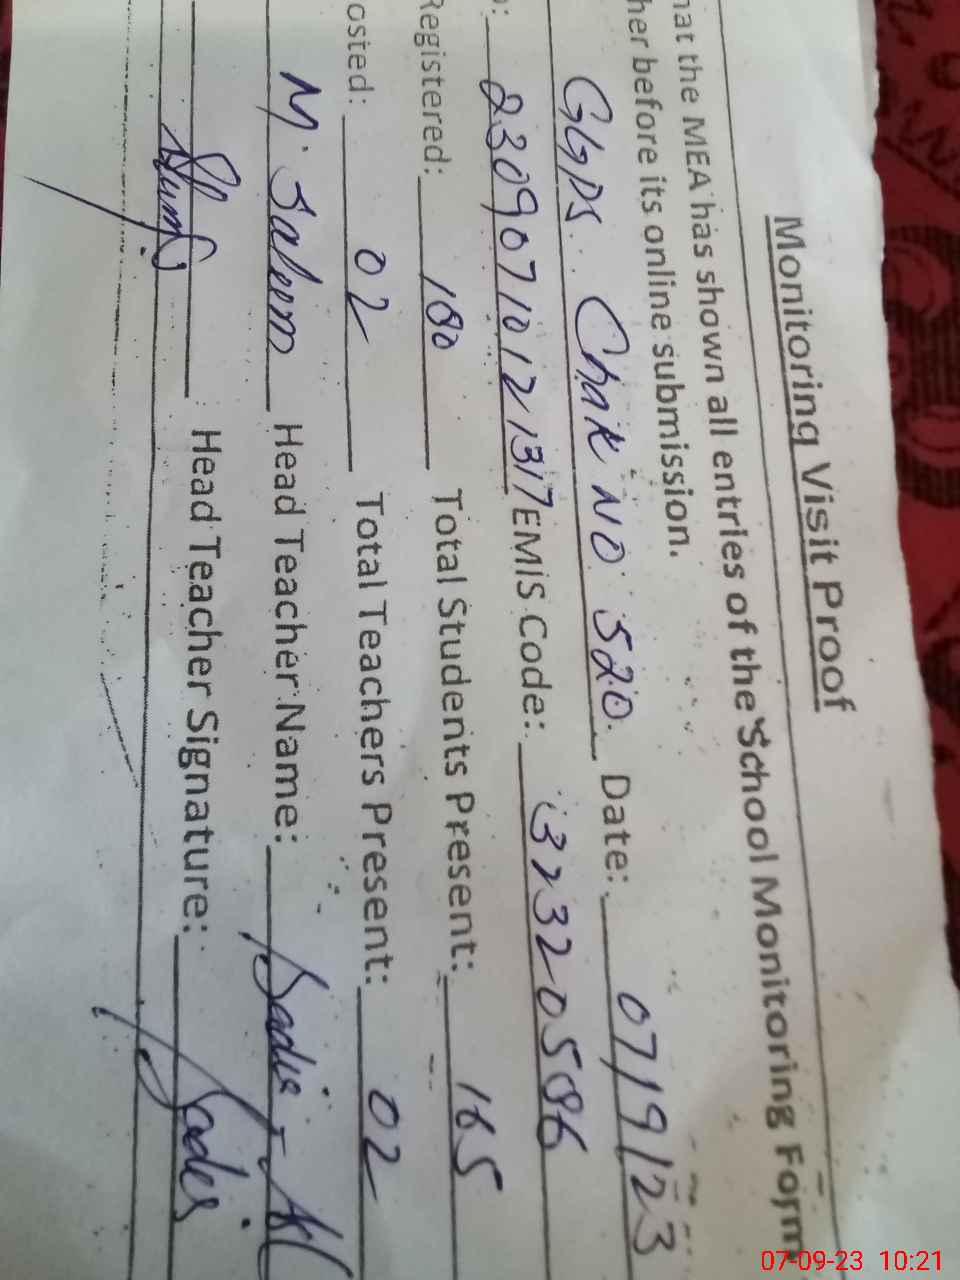 Monitoring Visit Proof
hat the MEA has shown all entries of the School Monitoring Form
her before its online submission.
GGPS. Chak NO 520. Date: 07/9/23
: 23090710121317 EMIS Code: 32320586
Registered: 180 Total Students Present: 165
osted: 02 Total Teachers Present: 02
M. Saleem Head Teacher Name: Sadia
Head Teacher Signature: Sadia
07-09-23 10:21